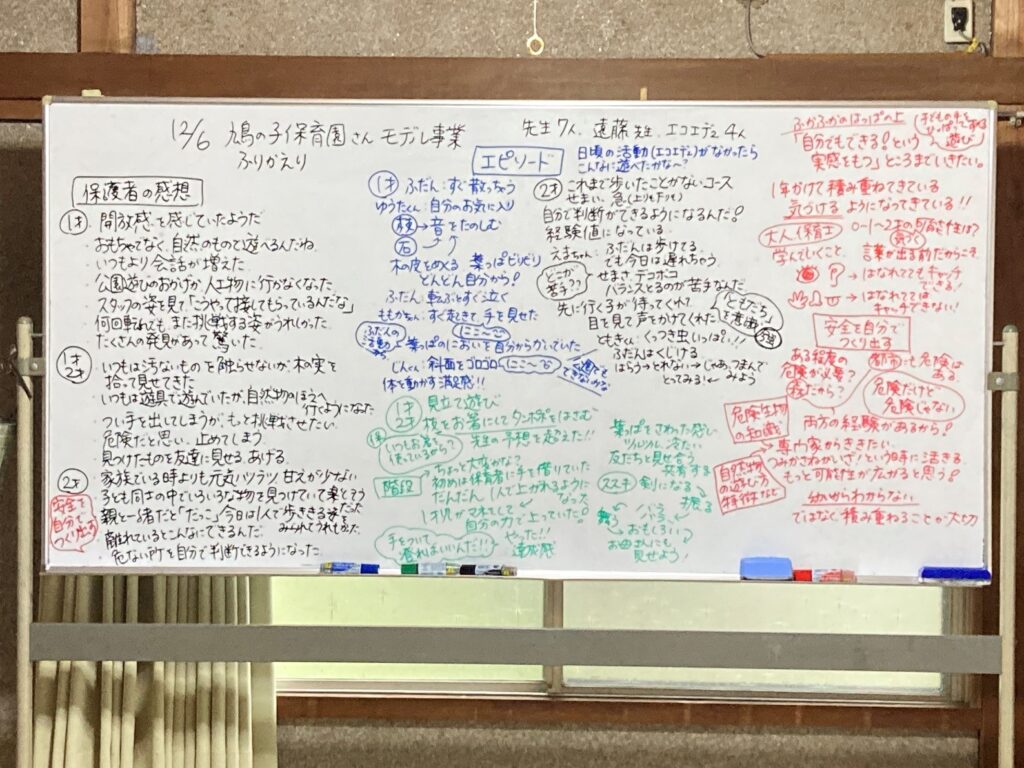 12/6 鳩の子保育園さん モデル事業
ふりかえり
先生7人、遠藤先生、エコエデュ4人
保護者の感想
1才
開放感を感じていたようだ
おもちゃでなく、自然のもので遊べるんだね
いつもより会話が増えた
公園遊びのおかげか、人工物に行かなくなった
スタッフの姿を見て「こうやって接してもらっているんだな」
何回転んでも、また挑戦する姿がうれしかった。
たくさんの発見があって驚いた。
1才
2才
いつもは汚ないものを触らせないが、木の実を
拾って見せてきた
いつもは遊具で遊んでいたが、自然物のほうへ
行くようになった
つい手を出してしまうが、もっと挑戦させたい
危険だと思い、止めてしまう
見つけたものを友達に見せる、あげる
2才
家族でいる時よりも元気ハツラツ 甘えが少ない
子ども同士の中でいろいろな物を見つけていて楽しそう
親と一緒だと「だっこ」今日は1人で歩ききる姿
みられてうれしかった
離れているとこんなにできるんだ。
危ない所を自分で判断できるようになった
安全を
自分で
つくり出す
エピソード
日頃の活動(エコエデュ)がなかったら
こんなに遊べたかな?
1才 ふだん:すぐ散っちゃう
ゆうたくん:自分のお気に入り
枝 → 音をたのしむ
石
木の皮をめくる 葉っぱビリビリ
どんどん自分から!
ふだん、転ぶとすぐ泣く
ももかちゃん:すぐ起きて、手を見せた
ふだんの
活動
から
葉っぱのにおいを自分からかいていた
しんくん:斜面をゴロゴロ
体を動かす満足感!!
2才 これまで歩いたことがないコース
せまい、急(上りも下りも)
自分で判断ができるようになるんだ!
経験値になっている
えまちゃん: ふだんは歩ける
でも今日は遅れちゃう
どこが
苦手??
せまさ、デコボコ
バランスとるのが苦手なんだ
先に行く子が待ってくれて
目を見て声をかけてくれた
「ともだち」
を意識
ともきくん:くっつき虫いっぱい!!
ふだんはくじける
はらうっとれない→じゃあ、つまんで
とってみる!みよう
1才 見立て遊び
2才 枝をお箸にしてタンポポをはさむ
先生の予想を超えた!!
階段
ちょっと大変かな?
初めは保育者に手を借りていた
だんだん1人で上がれるように
なった
1才児がマネをして
自分の力で上っていた。
手をついて
登ればいいんだ!!
やったー!!
達成感
葉っぱをさわった感じ
ツルツル、冷たい
友だちと見せ合う
共有する
ススキ 剣になる
振る
パラ
パラ
おもしろい
お母さんにも
見せよう!
ふかふかのはっぱの上
「自分でもできる!という
実感をもつ」ところまでいきたい。
遊び
1年かけて積み重ねてきている
気づけるようになってきている!!
大人、保育士
0-1~2才の可能性は?
学んでいくこと、言葉が出る前だからこそ
はなれててもキャッチ
できる!
はなれてては
キャッチできない!
安全を自分で
つくり出す
ある程度の
危険が必要?
都市にも危険は
ある。
危険だけど
危険じゃない
両方の経験があるから!
危険生物
の知識
専門家からききたい
「みかさなかいざ!」という時に活きる
自然物
の遊び方
特徴など
もっと可能性が広がると思う!
幼いからわからない
ではなく積み重ねることが大切